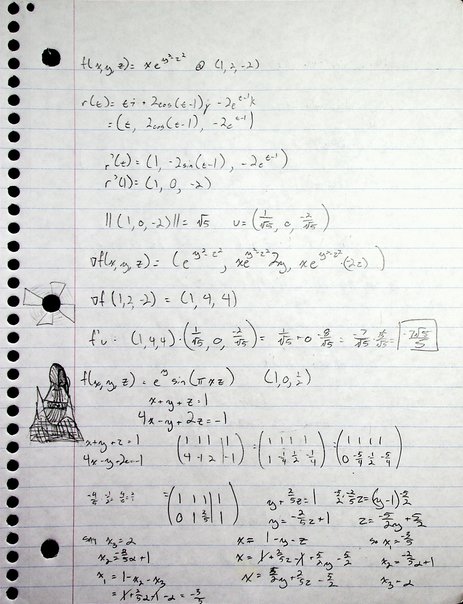 f(x,y,z) = xe^{y²-z²} @ (1,2,-2)
r(t) = ti + 2cos(t-1)j - 2e^{t-1}k
= (t, 2cos(t-1), -2e^{t-1})
r'(t) = (1, -2sin(t-1), -2e^{t-1})
r'(1) = (1, 0, -2)
||(1,0,-2)|| = √5 u = (1/√5, 0, -2/√5)
∇f(x,y,z) = (e^{y²-z²}, xe^{y²-z²}2y, xe^{y²-z²}·(2z))
∇f(1,2,-2) = (1, 4, 4)
f'u = (1,4,4)·(1/√5, 0, -2/√5) = 1/√5 + 0 - 8/√5 = -7/√5 · √5/√5 = -7√5/5
f(x,y,z) = e^y sin(πxz) (1,0,1/2)
x+y+z=1
4x-y+2z=-1
x+y+z=1 (1 1 1 | 1
4 -1 2 | -1) = (1 1 1 1
1 -1/4 1/2 -1/4) = (1 1 1 1
0 -5/4 -1/2 -5/4)
4x-y+2z=-1
= (1 1 1 | 1
0 1 2/5 | 1) y + 2/5z = 1
y = -2/5z + 1
5/2·2/5z = (y-1)·5/2
z = -5/2y + 5/2
say x₃ = 2 x = 1-y-z so x₁ = -3/5
x₂ = -2/5α + 1 x = 1 + 2/5z - 1 + 5/2y - 5/2 x₂ = -2/5α + 1
x₁ = 1 - x₂ - x₃ x = 5/2y + 2/5z - 5/2 x₃ = 2
= 1 + 2/5α - 1 - 2 = -3/5